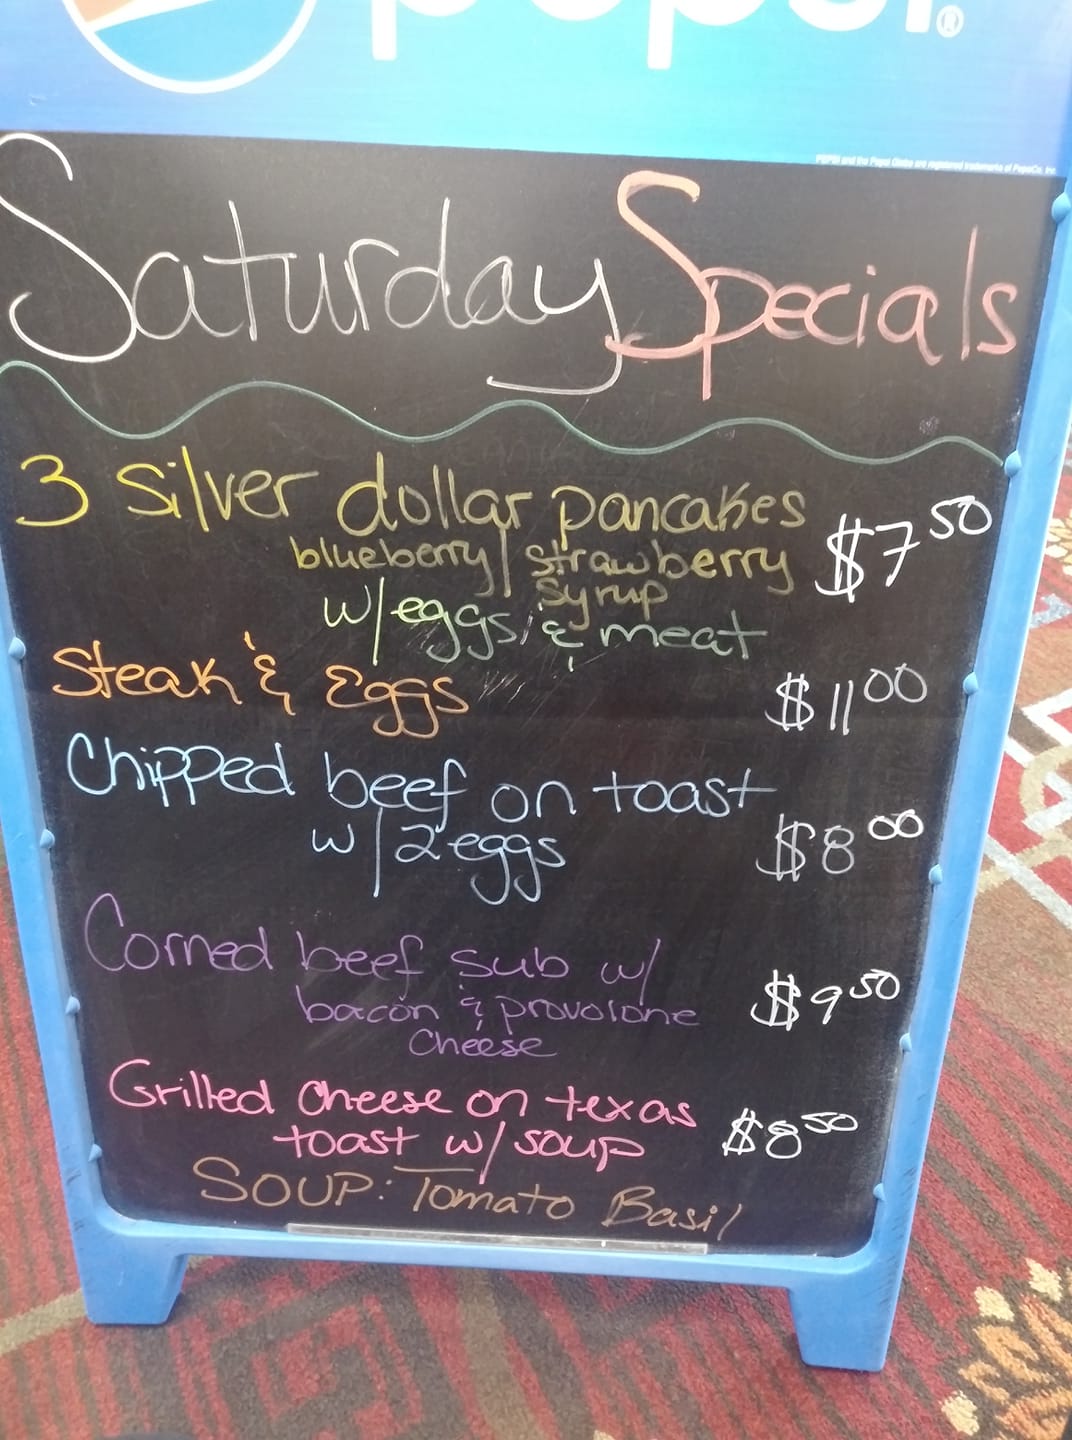 pepsi®
PEPSI and the Pepsi Globe are registered trademarks of PepsiCo, Inc.
Saturday Specials
3 Silver dollar pancakes
blueberry/strawberry $7.50
syrup
w/eggs & meat
Steak & Eggs $11.00
Chipped beef on toast
w/2 eggs $8.00
Corned beef sub w/
bacon & provolone $9.50
Cheese
Grilled Cheese on texas
toast w/soup $8.50
SOUP: Tomato Basil